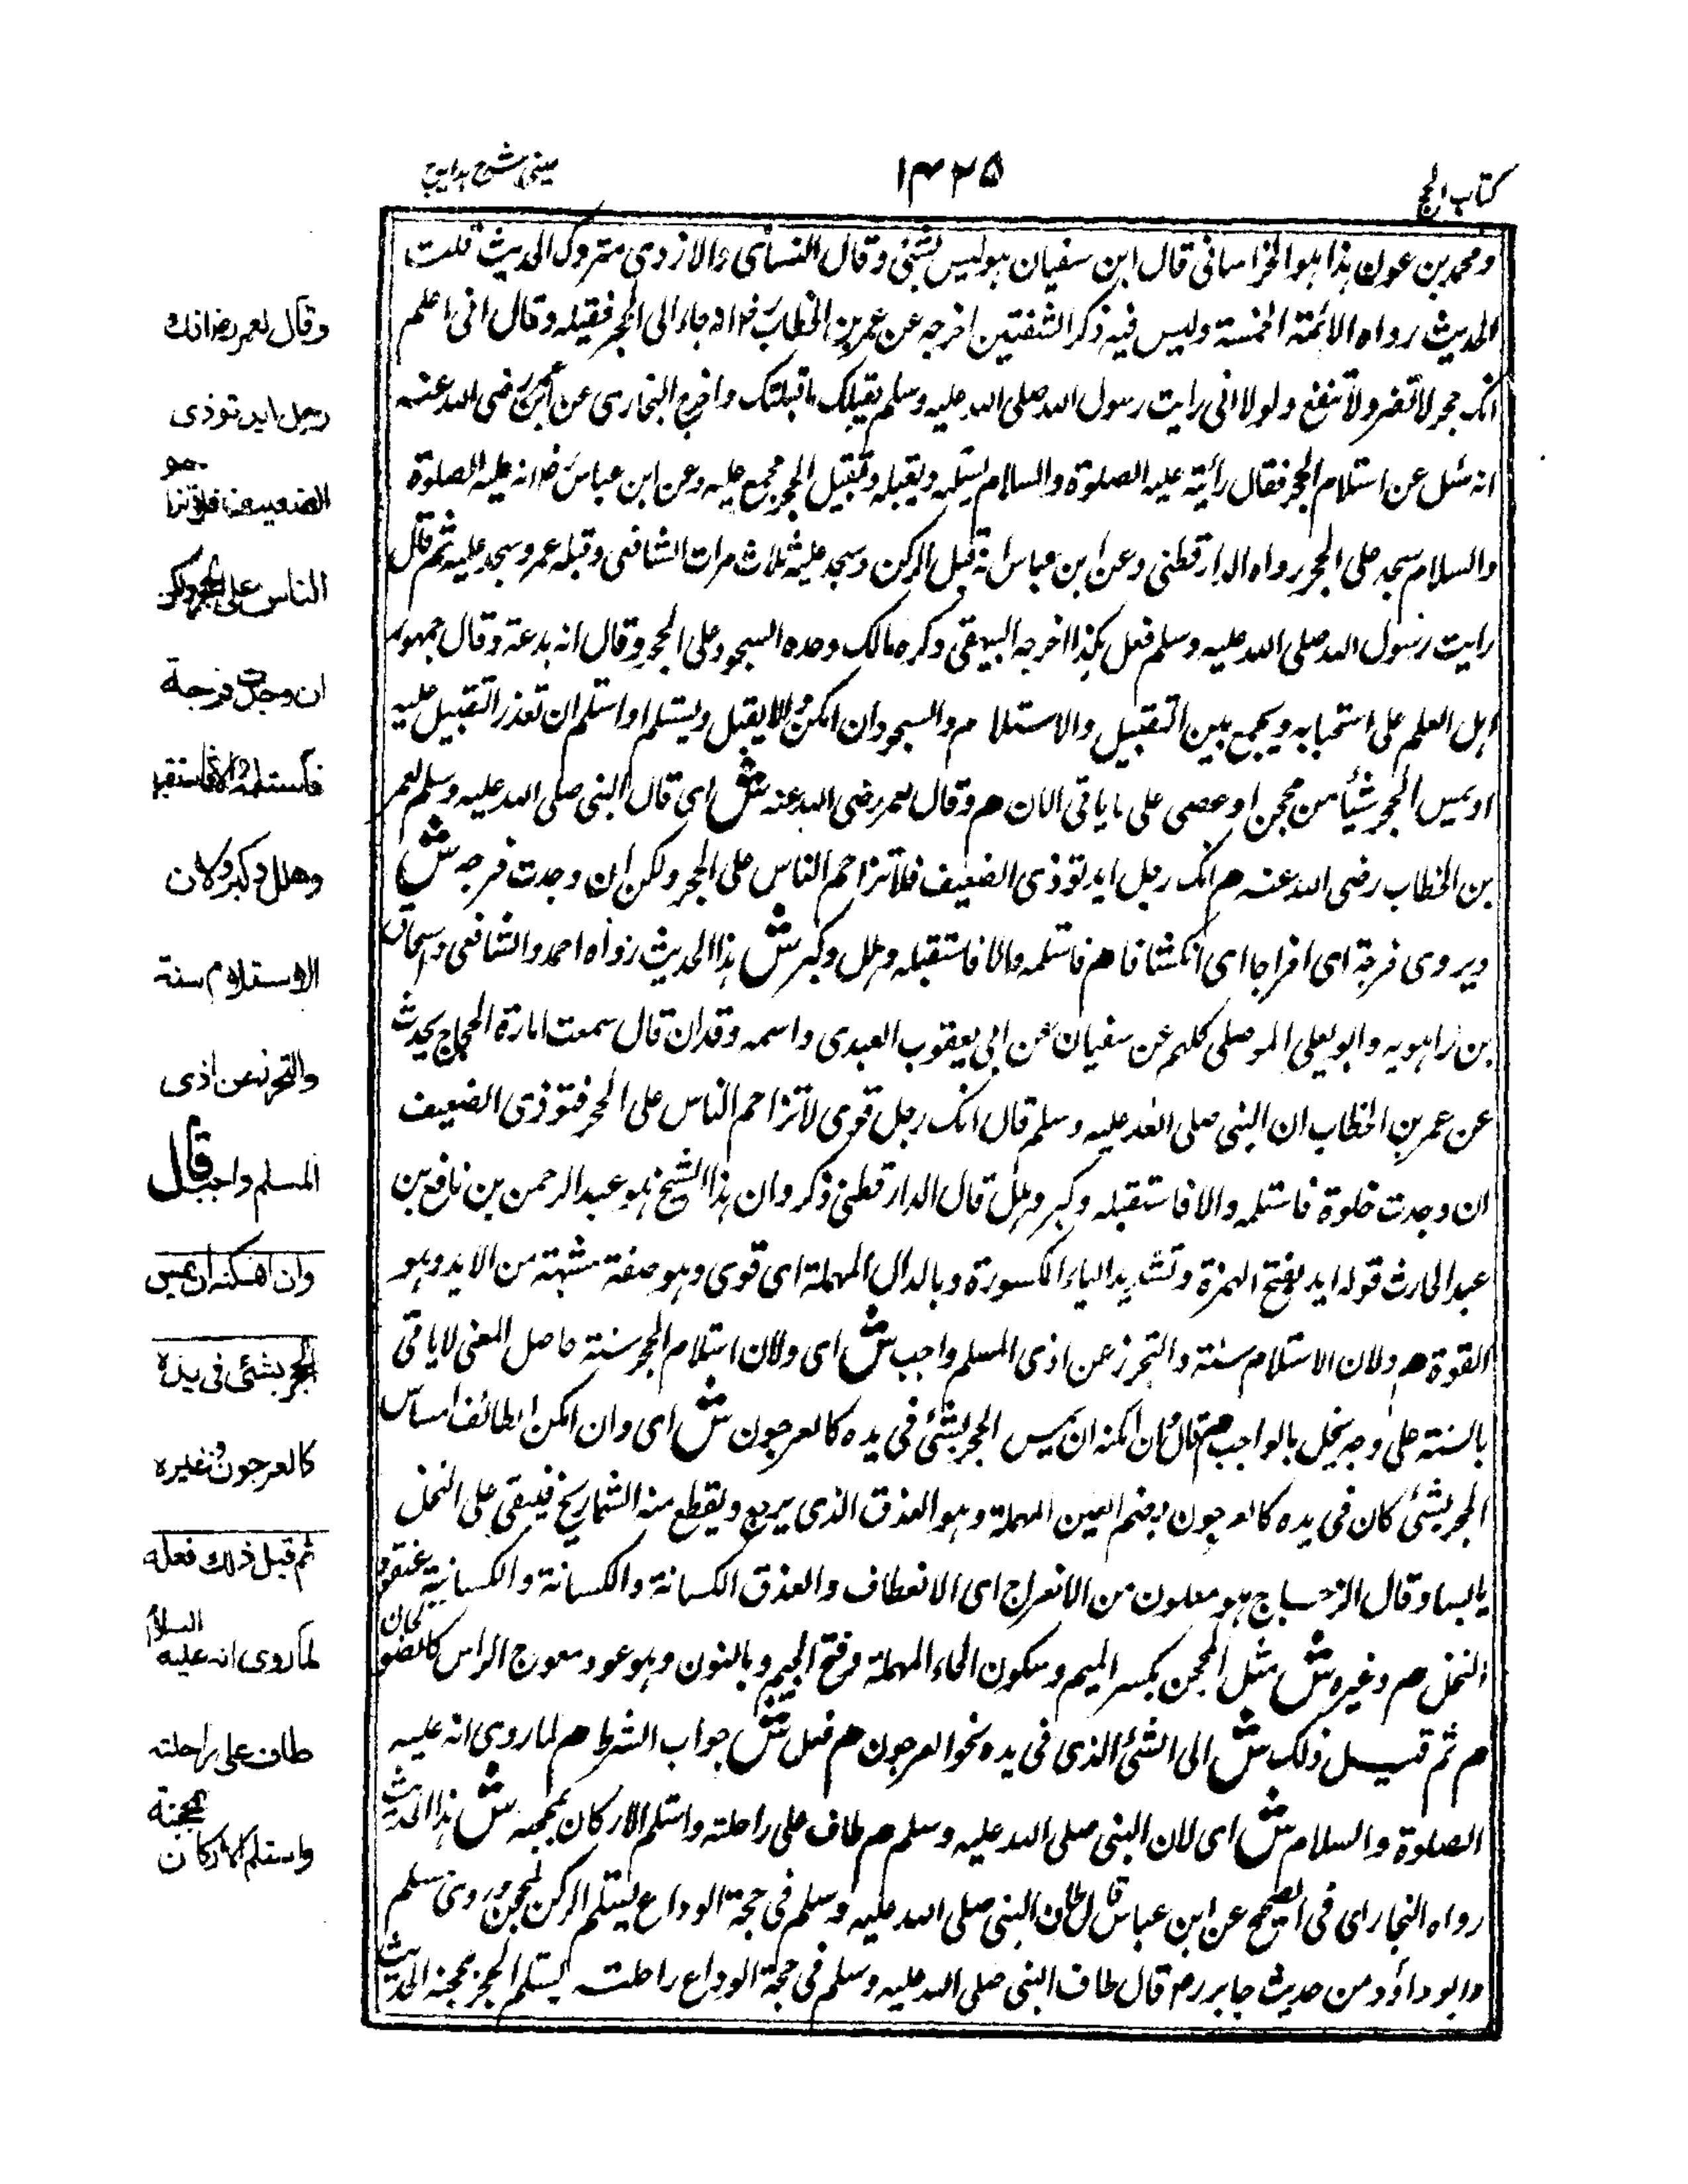 كتاب الحج
١٤٢٥
عينى شرح هدايه
ومحمد بن عون هذا هو الخراسانى قال ابن سفيان هو ليس بشئ وقال النسائى والازدى متروك الحديث قلت
الحديث رواه الائمة الخمسة وليس فيه ذكر الشفتين اخرجه عن عمر بن الخطاب رض انه جاء الى الحجر فقبله وقال انى اعلم
انك حجر لا تضر ولا تنفع ولولا انى رايت رسول الله صلى الله عليه وسلم يقبلك ما قبلتك واخرج البخارى عن ابن عمر رضى الله عنه
انه سئل عن استلام الحجر فقال رأيته عليه الصلوة والسلام يستلمه ويقبله وتقبيل الحجر مجمع عليه وعن ابن عباس رض انه عليه الصلوة
والسلام سجد على الحجر رواه الدارقطنى وعن ابن عباس انه قبل الركن وسجد عليه ثلاث مرات الشافعى وقبله عمر وسجد عليه ثم قال
رايت رسول الله صلى الله عليه وسلم فعل هكذا اخرجه البيهقى وكره مالك وحده السجود على الحجر وقال انه بدعة وقال جمهور
اهل العلم على استحبابه ويجمع بين التقبيل والاستلام والسجود ان امكن والا يقبل ويستلم او استلم ان تعذر التقبيل عليه
او يمس الحجر شيأ من محجن او عصى على ما ياتى الان هم وقال لعمر رضى الله عنه ش اى قال النبى صلى الله عليه وسلم لعمر
بن الخطاب رضى الله عنه هم انك رجل ايد توذى الضعيف فلا تزاحم الناس على الحجر ولكن ان وجدت فرجه ش
ويروى فرجة اى افراجا اى انكشافا هم فاستلمه والا فاستقبله وهلل وكبر ش هذا الحديث رواه احمد والشافعى واسحاق
بن راهويه وابو يعلى الموصلى كلهم عن سفيان عن ابى يعقوب العبدى واسمه وقدان قال سمعت امارة الحجاج يحدث
عن عمر بن الخطاب ان النبى صلى الله عليه وسلم قال انك رجل قوى لا تزاحم الناس على الحجر فتوذى الضعيف
ان وجدت خلوة فاستلمه والا فاستقبله وكبر وهلل قال الدارقطنى ذكر وان هذا الشيخ هو عبد الرحمن بن نافع بن
عبد الحارث قوله ايد بفتح الهمزة وتشديد الياء المكسورة وبالدال المهملة اى قوى وهو صفة مشبهة من الايد وهو
القوة هم ولان الاستلام سنة والتحرز عن اذى المسلم واجب ش اى ولان استلام الحجر سنة حاصل المعنى لا ياتى
بالسنة على وجه يخل بالواجب هم قال وان امكنه ان يمس الحجر بشئ فى يده كالعرجون ش اى وان امكن الطائف امساس
الحجر بشئ كان فى يده كالعرجون بضم العين المهملة وهو العذق الذى يريج ويقطع منه الشماريخ فيبقى على النخل
يابسا وقال الزجاج هو معلون من الانعراج اى الانعطاف والعذق الكسانة والكسانة والكسانية عنقود
النخل هم وغيره ش مثل المحجن بكسر الميم وسكون الحاء المهملة وفتح الجيم وبالنون وهو عود معوج الراس كالصولجان
هم ثم قبل ذلك ش الى الشئ الذى فى يده نحو العرجون هم فعل ش جواب الشرط هم لما روى انه عليه
الصلوة والسلام ش اى لان النبى صلى الله عليه وسلم هم طاف على راحلته واستلم الاركان بمحجنه ش هذا الحديث
رواه البخارى فى الصحيح عن ابن عباس قال طاف النبى صلى الله عليه وسلم فى حجة الوداع يستلم الركن لمحجن وروى مسلم
وابو داؤد من حديث جابر رض قال طاف النبى صلى الله عليه وسلم فى حجة الوداع راحلته يستلم الحجر بمحجنه الحديث
وقال لعمر رض انك
رجل ايد توذى
الضعيف فلا تزاحمو
الناس على الحجر ولكن
ان وجدت فرجة
فاستلمه والا فاستقبله
وهلل وكبر ولان
الاستلام سنة
والتحرز عن اذى
المسلم واجب قال
وان امكنه ان يمس
الحجر بشئ فى يده
كالعرجون وغيره
ثم قبل ذلك فعله
لما روى انه عليه السلام
طاف على راحلته
واستلم الاركان بمحجنة